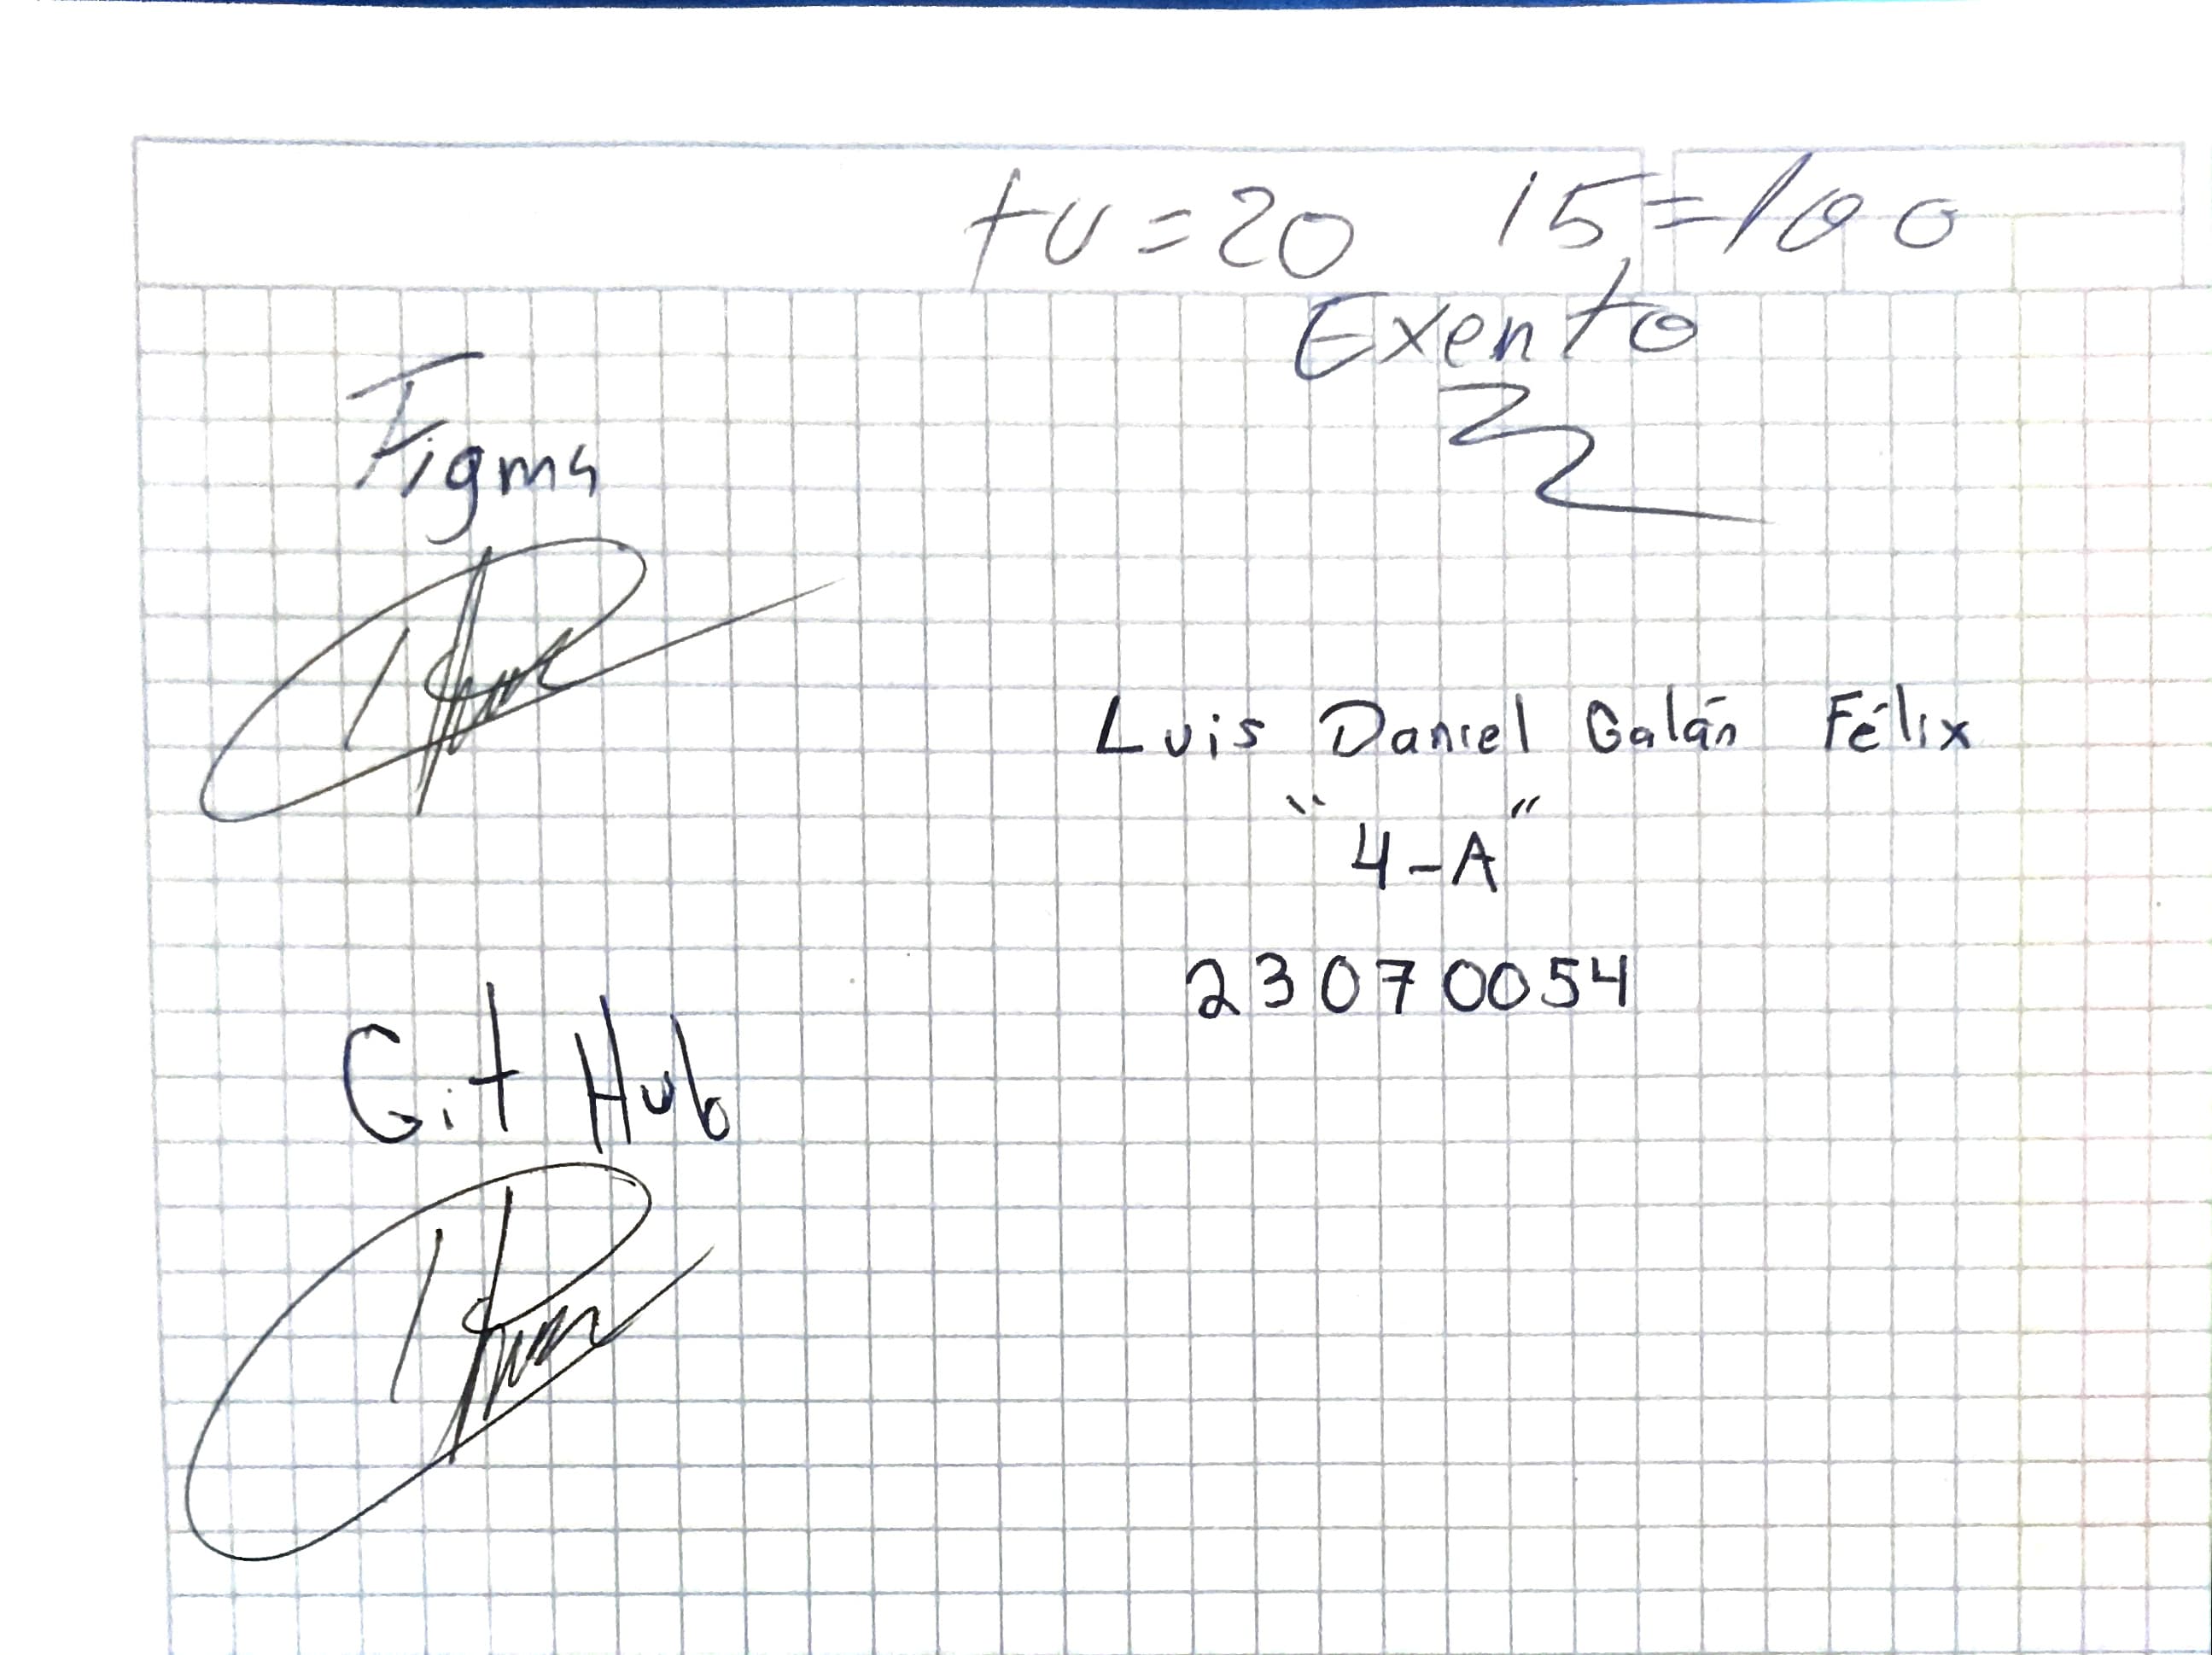 tu = 20 15 = 100
Exento
Figma
Luis Daniel Galán Félix
"4-A"
23070054
Git Hub